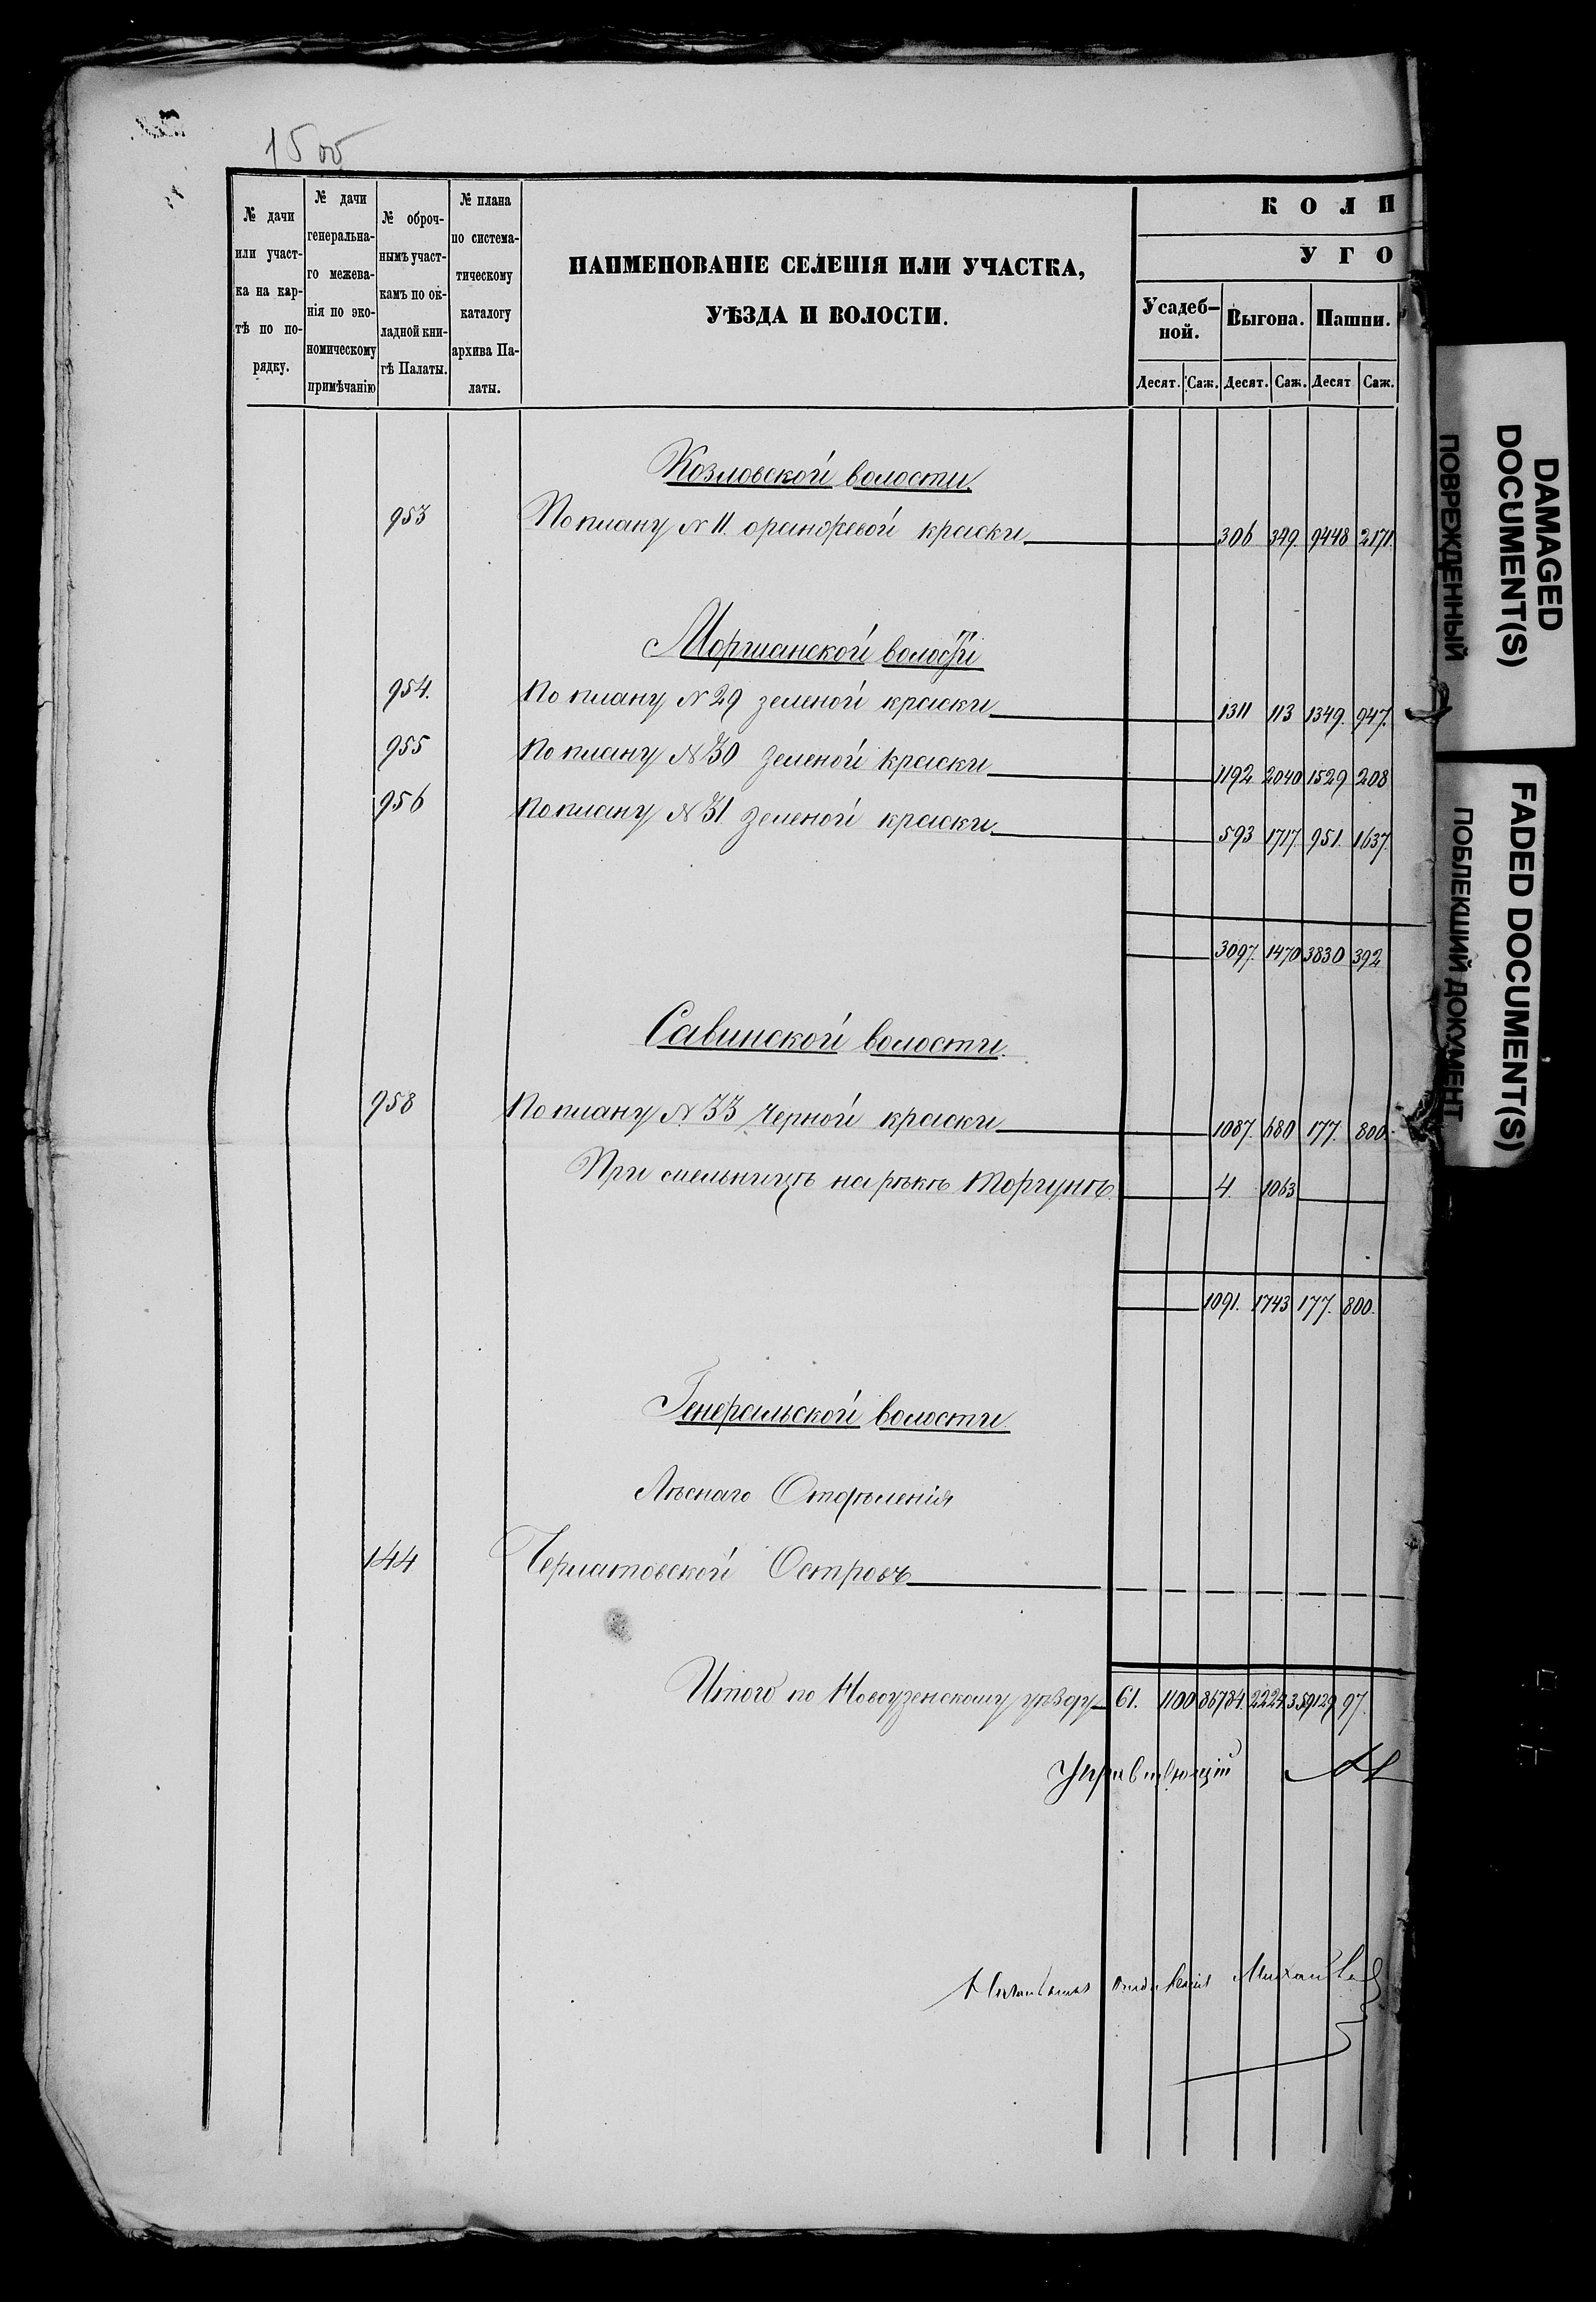 15 об
№ дачи или участ-ка на кар-тѣ по по-рядку.
№ дачи генерально-го межева-нія по эко-номическому примѣчанію
№ оброч-нымъ участ-камъ по ок-ладной кни-гѣ Палаты.
№ плана по система-тическому каталогу архива Па-латы.
НАИМЕНОВАНІЕ СЕЛЕНІЯ ИЛИ УЧАСТКА,
УѢЗДА И ВОЛОСТИ.
КОЛИ
УГО
Усадеб-ной. Выгона. Пашни.
Десят. Саж. Десят. Саж. Десят Саж.
Козловской волости.
953 По плану N 11. оранжевой краски 306 349. 9448 2171.
Моршанской волости
954. По плану N 29 зеленой краски 1311 113 1349. 947.
955 По плану N 30 зеленой краски 1192 2040 1529 208
956 По плану N 31. зеленой краски 593 1717. 951. 1637.
3097. 1470 3830 392
Савинской волости.
958 По плану N 33 черной краски 1087. 680 177. 800.
При мельницѣ на рѣкѣ Торгунѣ. 4 1063
1091. 1743 177. 800.
Генеральской волости
Лѣснаго Отдѣленія
144 Островъ
Итого по Новоузенскому уѣзду 61. 1100 86784. 2224. 359129 97.
Управляющій
Начальникъ Отдѣленія
DAMAGED DOCUMENT(S)
ПОВРЕЖДЕННЫЙ
FADED DOCUMENT(S)
ПОБЛЕКШИЙ ДОКУМЕНТ